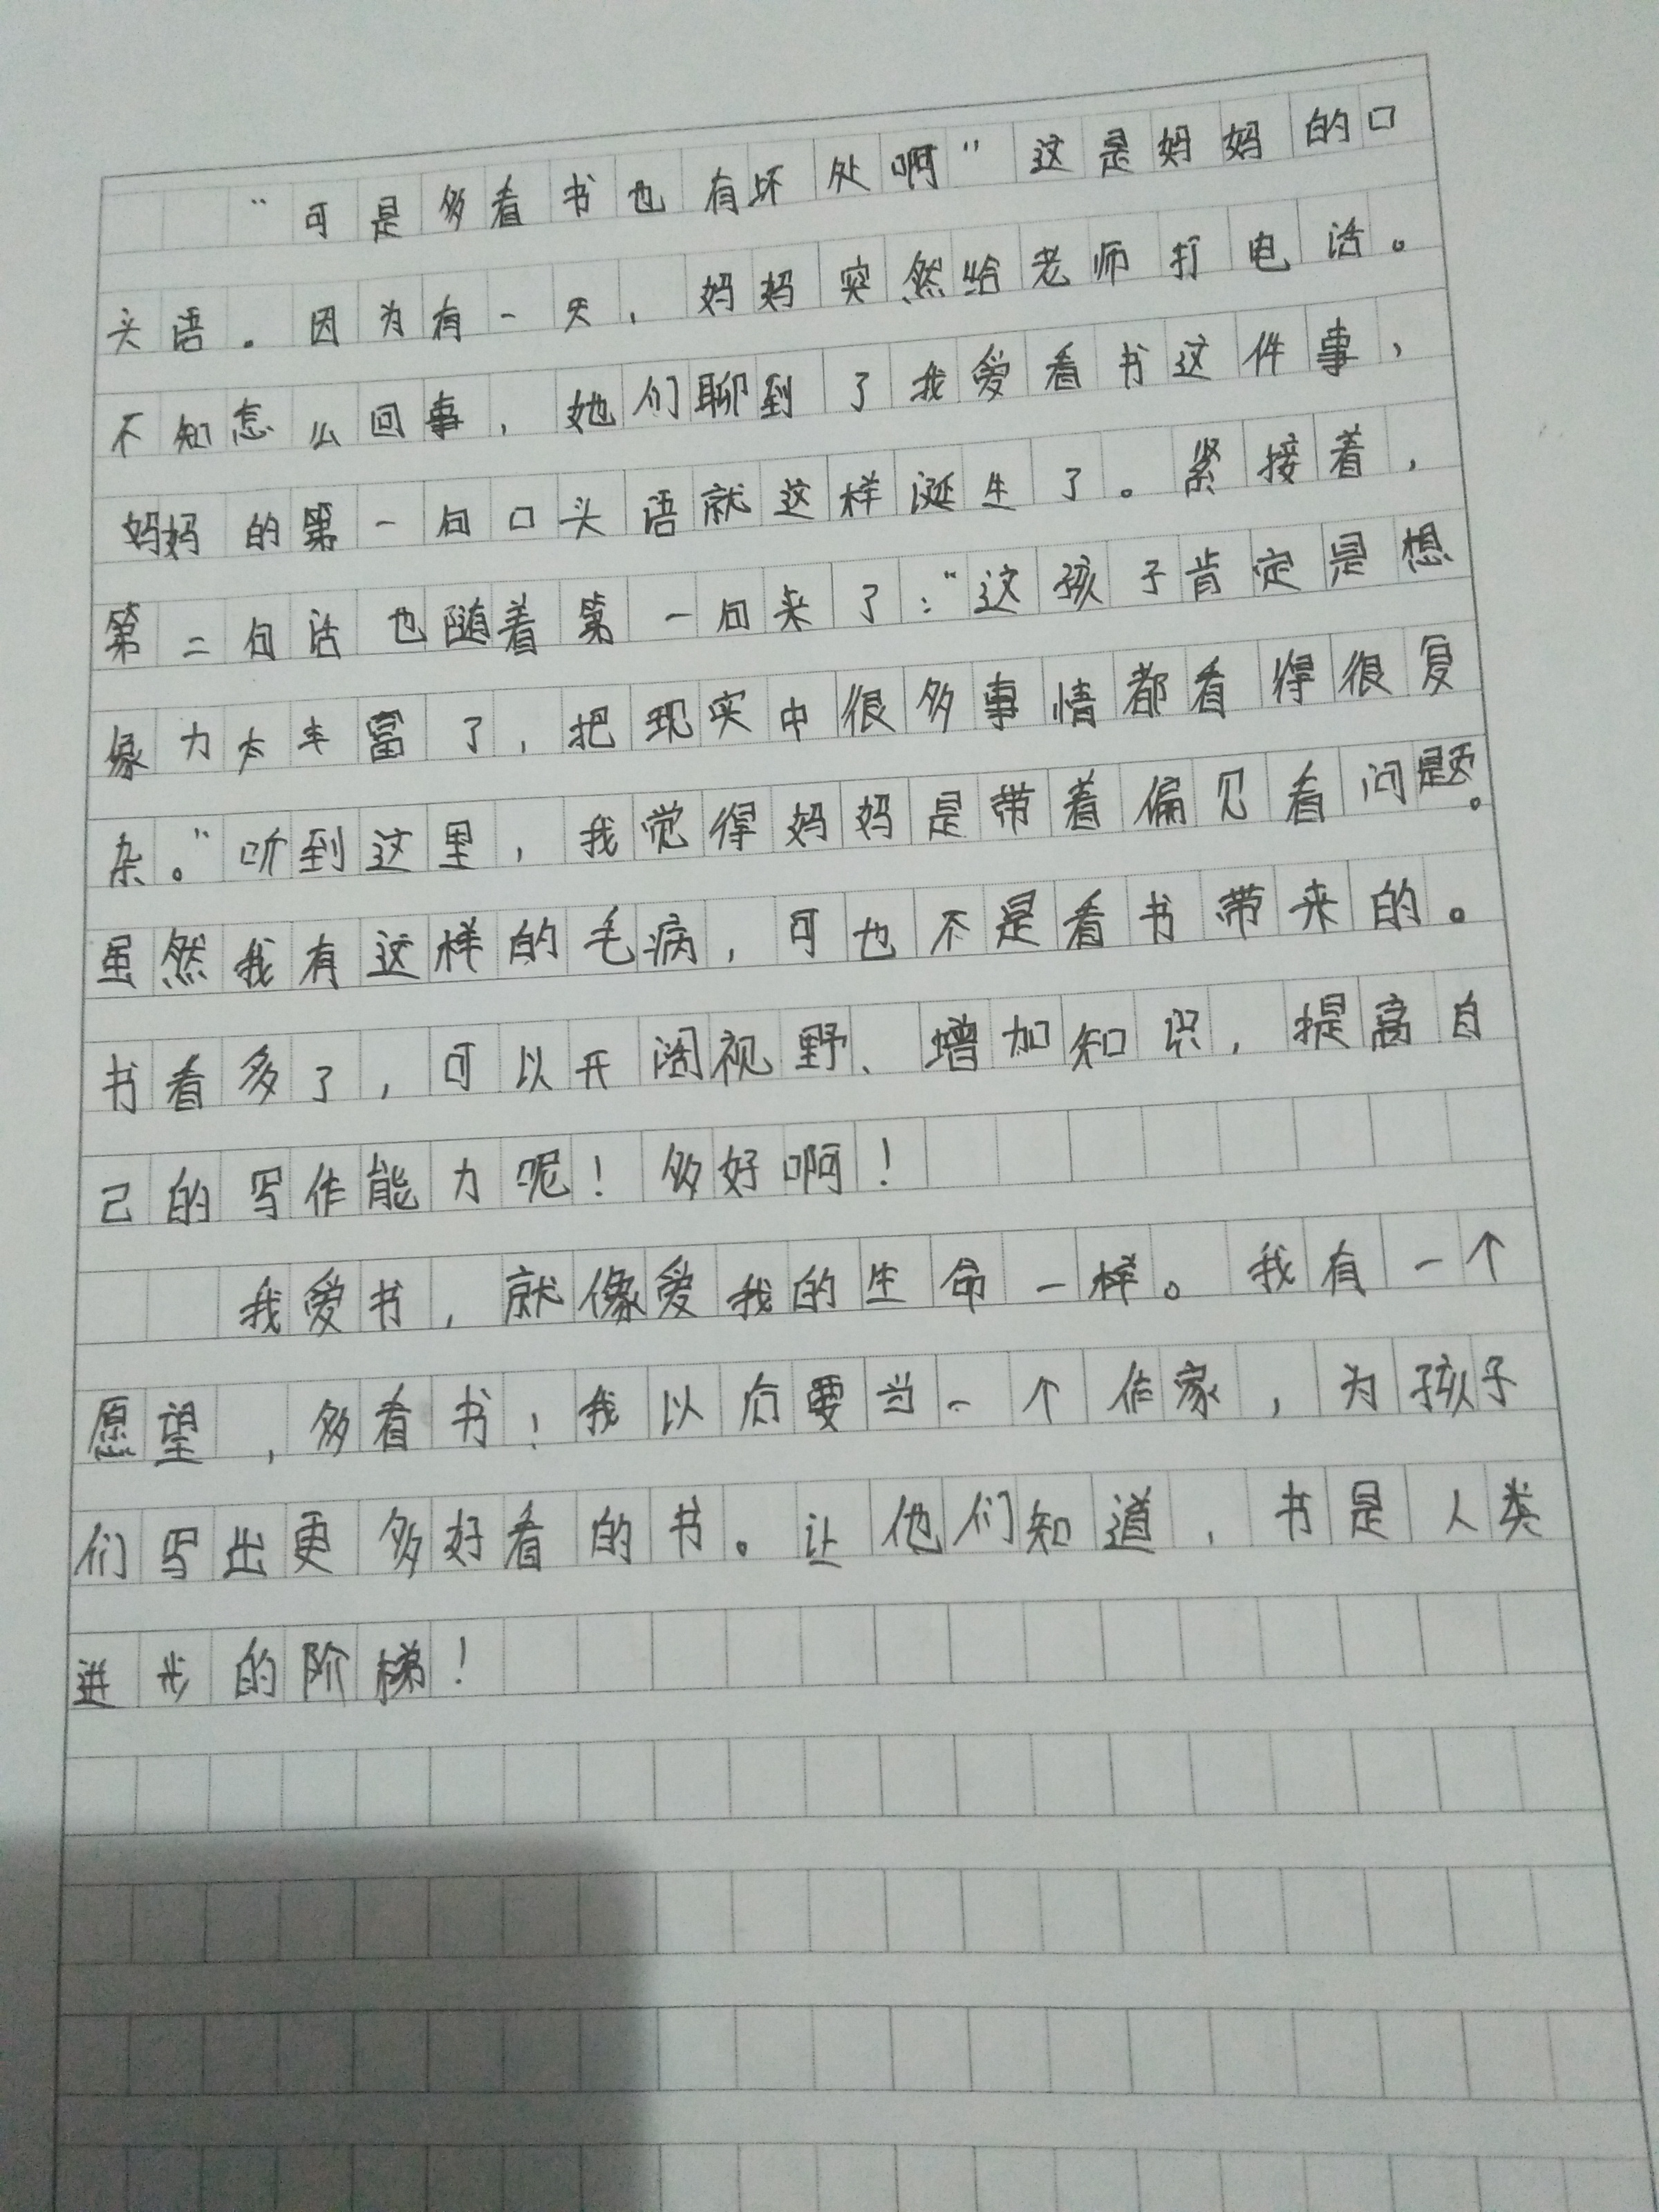 “可是多看书也有坏处啊”这是妈妈的口
头语。因为有一天，妈妈突然给老师打电话。
不知怎么回事，她们聊到了我爱看书这件事，
妈妈的第一句口头语就这样诞生了。紧接着，
第二句话也随着第一句来了：“这孩子肯定是想
像力太丰富了，把现实中很多事情都看得很复
杂。”听到这里，我觉得妈妈是带着偏见看问题。
虽然我有这样的毛病，可也不是看书带来的。
书看多了，可以开阔视野、增加知识，提高自
己的写作能力呢！多好啊！
我爱书，就像爱我的生命一样。我有一个
愿望，多看书！我以后要当一个作家，为孩子
们写出更多好看的书。让他们知道，书是人类
进步的阶梯！